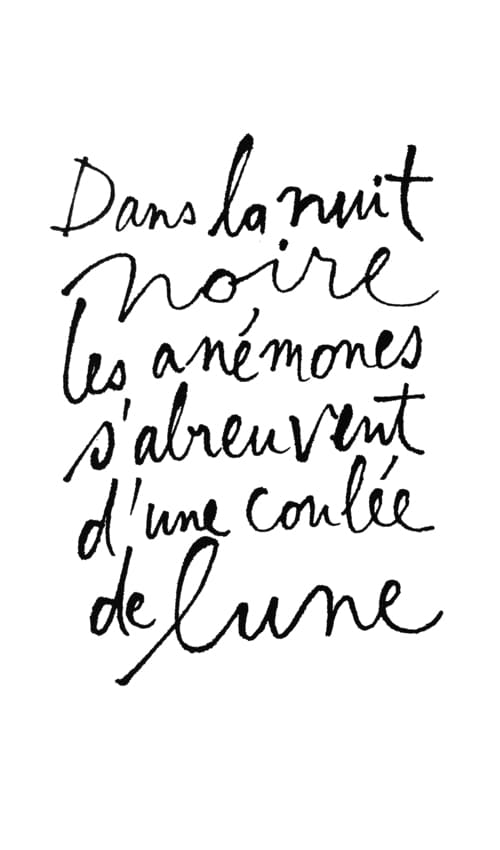 Dans la nuit
noire
les anémones
s'abreuvent
d'une coulée
de lune